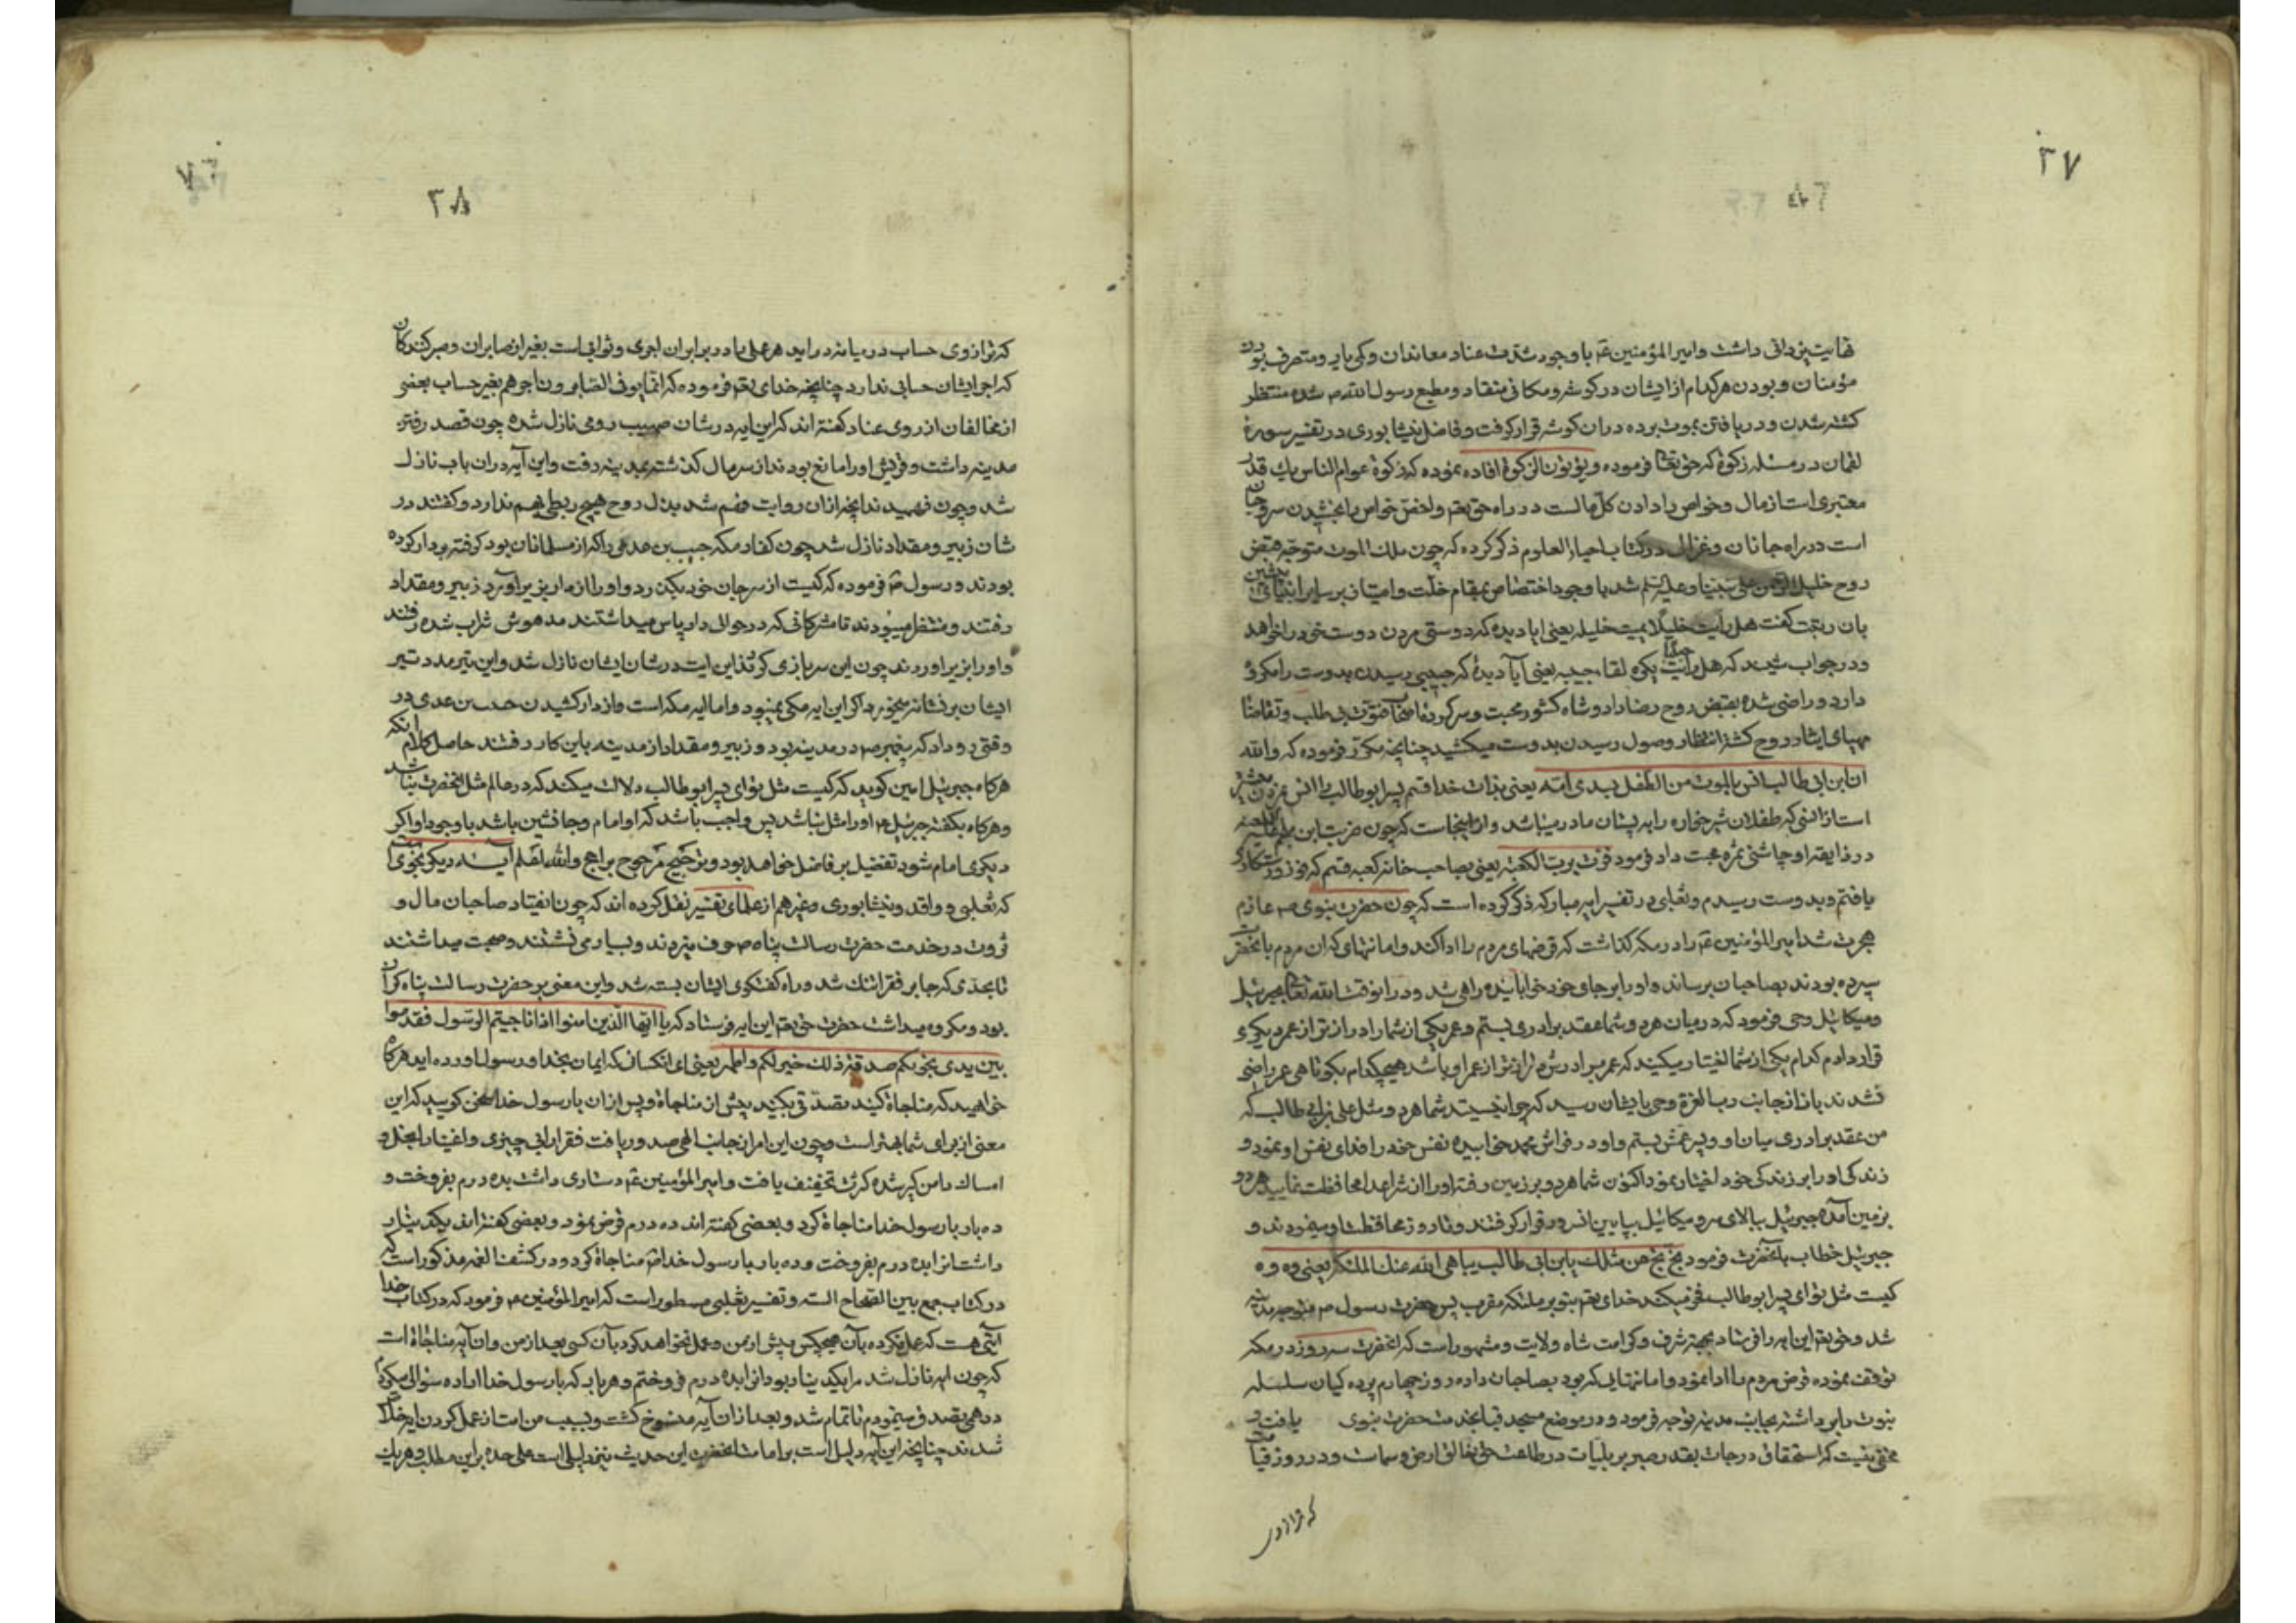 ۲۷
نهایت پزدانی داشت وامیرالمؤمنین عم باوجود شدت عناد معاندان وکمی یار ومتصرف بودن
مؤمنان وبودن هرکدام از ایشان درکوشه ومکانی منقاد ومطیع رسول الله ص شده منتظر
کشته شدن ودریافتن بموت برده دران کوشه قرارکرفت وفاضل نیشابوری در تفسیر سوره
لقمان در مسئله زکوة که حق تعا فرموده ویؤتون الزکوة افاده نموده که زکوة عوام الناس یك قدر
معتبری است از مال وخواص را دادن کل مالست در راه حق تعم واخص خواص را بخشیدن سر وجان
است در راه جانان وغزالی درکتاب احیاء العلوم ذکرکرده که چون ملك الموت متوجه قبض
روح خلیل الرحمن علی نبینا وعلیه السلم شد با وجود اختصاص بمقام خلت وامتیاز بر سایر انبیای
بان رتبت کفت هل رایت خلیلا یمیت خلیله یعنی ایا دیده که دوستی مردن دوست خود را خواهد
ودر جواب شنید که هل رایت حبیبا یکره لقاء حبیبه یعنی آیا دیدهٔ که حبیبی رسیدن بدوست را مکروه
دارد وراضی شده بقبض روح رضا داد وشاه کشور محبت وسرکرده اصحاب فتوت بی طلب وتقاضا
مهیای ایثار روح کشته انتظار وصول رسیدن بدوست میکشید چنانچه مکرر فرموده که والله
ان ابن ابی طالب انس بالموت من الطفل بثدی امه یعنی بذات خدا قسم پسر ابوطالب را انس بمردن بیشتر
است از انسی که طفلان شیرخواره را به پستان مادر میباشد واز اینجاست که چون ضربت ابن ملجم علیه اللعنه
در ذایقه او چاشنی ثمره محبت داد فرمود فزت برب الکعبه یعنی بصاحب خانه کعبه قسم که فوز ورستکاری
یافتم وبدوست رسیدم وثعلبی در تفسیر ایه مبارکه ذکرکرده است که چون حضرت نبوی ص عازم
هجرت شد امیرالمؤمنین عم را در مکه کذاشت که قرضهای مردم را اداکند وامانتهای که ان مردم بانحضرت
سپرده بودند بصاحبان برساند واو را برجای خود خوابانیده راهی شد ودر انوقت الله تعا بجبرئیل
ومیکائیل وحی فرمود که در میان هردو شما عقد برادری بستم وعمر یکی از شما را دراز تر از عمر دیکری
قرار دادم کدام یکی از شما اختیار میکنید که عمر برادرش دراز تر از عمر او باشد هیچکدام بکوتاهی عمر راضی
نشدند باز از جانب رب العزة وحی بایشان رسید که چرا نیستید شما هردو مثل علی بن ابی طالب که
من عقد برادری میان او وپسر عمش بستم واو در فراش محمد خوابیده نفس خود را فدای نفس او نمود و
زندکی او را بر زندکی خود اختیار نمود اکنون شما هردو بر زمین رفته او را از شر اعدا محافظت نمایید هردو
بزمین آمده جبرئیل ببالای سر ومیکائیل بپایین انسرور قرارکرفتند وتا روز محافظت او مینمودند و
جبرئیل خطاب بانحضرت فرمود بخ بخ من مثلك یابن ابی طالب یباهی الله عنك الملئکه یعنی وه وه
کیست مثل توای پسر ابوطالب فخر میکند خدای تعم بتو بر ملئکه مقرب پس حضرت رسول ص متوجه مدینه
شد وحق تعم این ایه را فرستاد بجهة شرف وکرامت شاه ولایت ومشهور است که انحضرت سه روز در مکه
توقف نموده قرض مردم را ادا نمود وامانتهایی که بود بصاحبان داده روز چهارم پرده کیان سلسله
نبوت را برداشته بجانب مدینه توجه فرمود ودر موضع مسجد قبا بخدمت حضرت نبوی یافت و
مخفی نیست که استحقاق درجات بقدر صبر بر بلیات در طاعت حق خالق ارض وسماست ودر روز قیامت
که ترازوی
۲۸
که ترازوی حساب در میانه دراید هرعملی را در برابر ان اجری وثوابی است بغیر از صابران وصبرکنندکان
که اجر ایشان حسابی ندارد چنانچه خدای تعم فرموده که انما یوفی الصابرون اجرهم بغیر حساب بعضی
از مخالفان از روی عناد کفته اند که این ایه در شان صهیب رومی نازل شده چون قصد رفتن
مدینه داشت وقریش او را مانع بودند از سر مال کذشته بمدینه رفت واین آیه دران باب نازل
شد وچون فهمیدند انچه ازان روایت فهم شد ببذل روح هیچ ربطی بهم ندارد وکفتند در
شان زبیر ومقداد نازل شد چون کفار مکه حبیب بن عدی را که از مسلمانان بود کرفته بردار کرده
بودند ورسول ص فرموده که کیست از سر جان خود بکذرد واو را از دار بزیر آورد زبیر ومقداد
رفتند ومنتظر میبودند تا مشرکانی که در حوالی دار پاس میداشتند مدهوش شراب شده رفتند
واو را بزیر اوردند چون این سربازی کردند این ایت در شان ایشان نازل شد واین تیر مدد تیر
ایشان بر نشانه میخورد اکر این ایه مکی نمیبود واما ایه مکه است واز دار کشیدن حبیب بن عدی در
وقتی رو داد که پیغمبر ص در مدینه بود وزبیر ومقداد از مدینه باین کار رفتند حاصل کلام انکه
هرکاه جبرئیل امین کوید که کیست مثل توای پسر ابوطالب دلالت میکند که در عالم مثل انحضرت نباشد
وهرکاه بکفته جبرئیل ع او را مثل نباشد پس واجب باشد که او امام وجانشین باشد با وجود او اکر
دیکری امام شود تفضیل بر فاضل خواهد بود وترجیح مرجوح براجح والله اعلم آیه دیکر نجوی است
که ثعلبی وواقدی ونیشابوری وغیرهم از علمای تفسیر نقل کرده اند که چون انقیاد صاحبان مال و
ثروت در خدمت حضرت رسالت پناه ص حرف میزدند وبسیار می نشستند وصحبت میداشتند
تا بحدی که جا بر فقرا تنك شد وراه کفتکوی ایشان بسته شد واین معنی بر حضرت رسالت پناه کران
بود ومکروه میداشت حضرت حق تعم این ایه فرستاد که یا ایها الذین امنوا اذا ناجیتم الرسول فقدموا
بین یدی نجویکم صدقة ذلك خیر لکم واطهر یعنی ای انکسان که ایمان بخدا ورسول اورده اید هرکاه
خواهید که مناجاة کنید تصدقی بکنید پیش از مناجاة وپس ازان با رسول خدا سخن کویید که این
معنی از برای شما بهتر است وچون این امر از جانب الهی صدور یافت فقرا را بی چیزی واغنیا را بخل و
امساك دامن کیر شده کثرت تخفیف یافت وامیرالمؤمنین عم دستاری داشت بده درم بفروخت و
ده بار با رسول خدا مناجاة کرد وبعضی کفته اند ده درم قرض نمود وبعضی کفته اند یکدینار
داشت انرا بده درم بفروخت وده بار با رسول خدا ص مناجاة کرد ودر کشف الغمه مذکور است که
درکتاب جمع بین الصحاح السته وتفسیر ثعلبی مسطور است که امیرالمؤمنین ع فرمود که درکتاب خدا
آیتی هست که عمل نکرده بآن هیچکس پیش از من وعمل نخواهد کرد بآن کسی بعد از من وان آیه مناجاة است
که چون ایه نازل شد مرا یکدینار بود انرا بده درم فروختم وهربار که با رسول خدا اراده سؤالی میکردم
درهمی تصدق مینمودم تا تمام شد وبعد ازان آیه منسوخ کشت وبسبب من امت از عمل کردن ایه خلاص
شدند چنانچه این آیه دلیل است بر امامت انحضرت این حدیث نیز دلیلی است علی حده براین مطلب وهریك